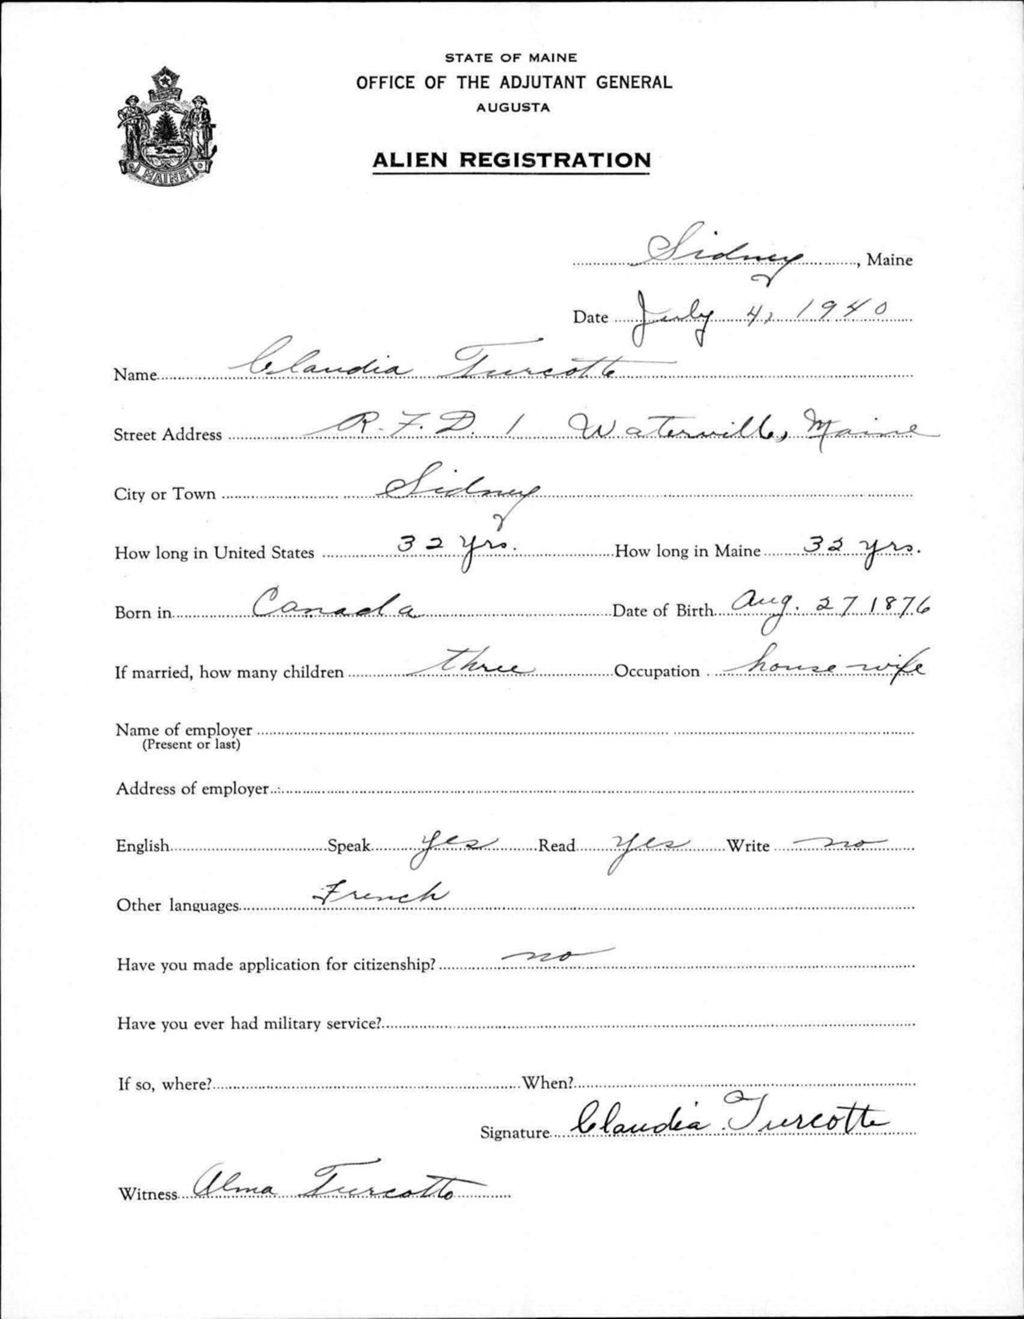 STATE OF MAINE
OFFICE OF THE ADJUTANT GENERAL
AUGUSTA
ALIEN REGISTRATION
MAINE
Sidney, Maine
Date July 4, 1940
Name Claudia Turcotte
Street Address R.F.D. 1 Waterville, Maine
City or Town Sidney
How long in United States 32 yrs. How long in Maine 32 yrs.
Born in Canada Date of Birth Aug. 27 1876
If married, how many children three Occupation house-wife
Name of employer
(Present or last)
Address of employer
English Speak yes Read yes Write no
Other languages French
Have you made application for citizenship? no
Have you ever had military service?
If so, where? When?
Signature Claudia Turcotte
Witness Alma Turcotte